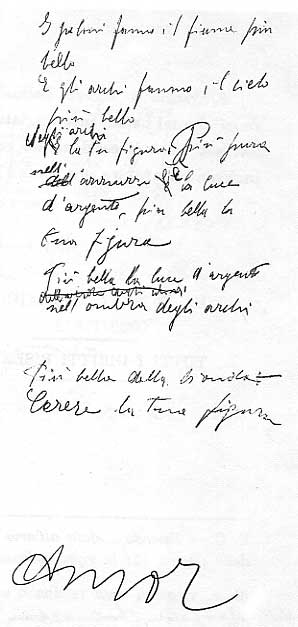 I piloni fanno il fiume più
bello
E gli archi fanno il cielo
più bello
Negli archi
la tua figura. Più pura
nell'
azzurro è la luce
d'argento, più bella la
tua figura
Più bella la luce d'argento
nell'ombra degli archi
Più bella della bionda =
Cerere la tua figura